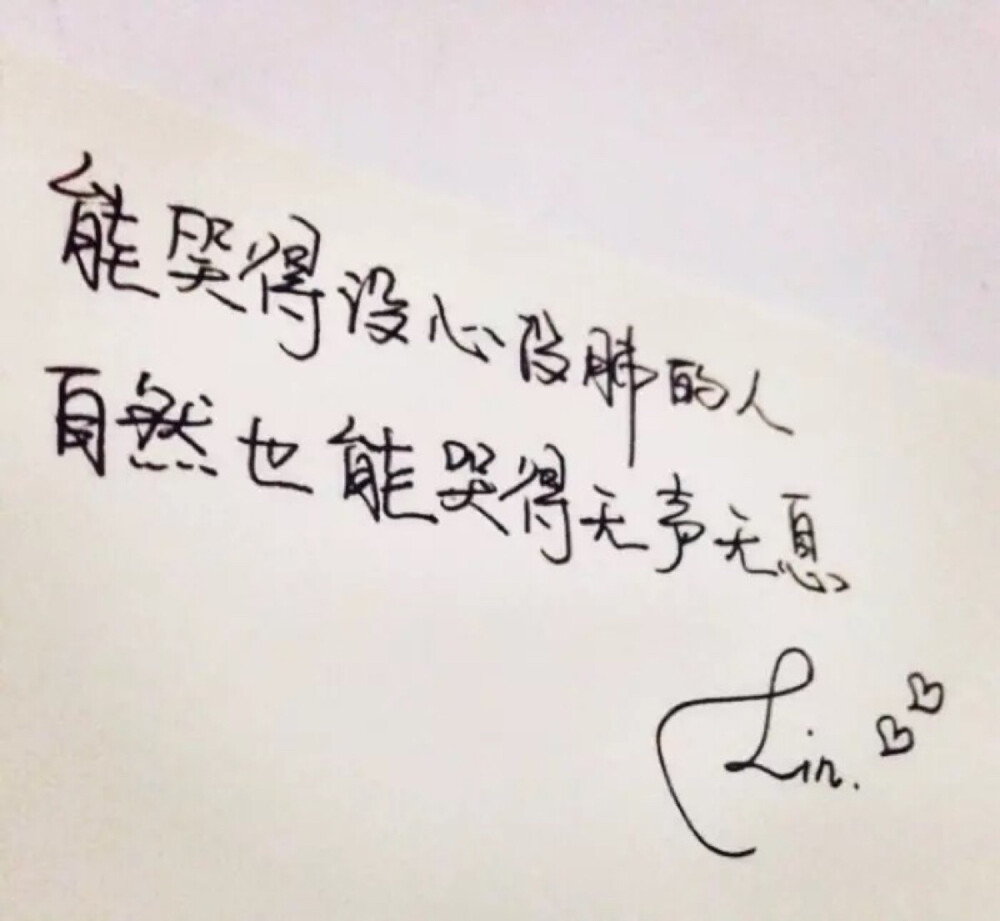 能哭得没心没肺的人
自然也能哭得无声无息
Lin.